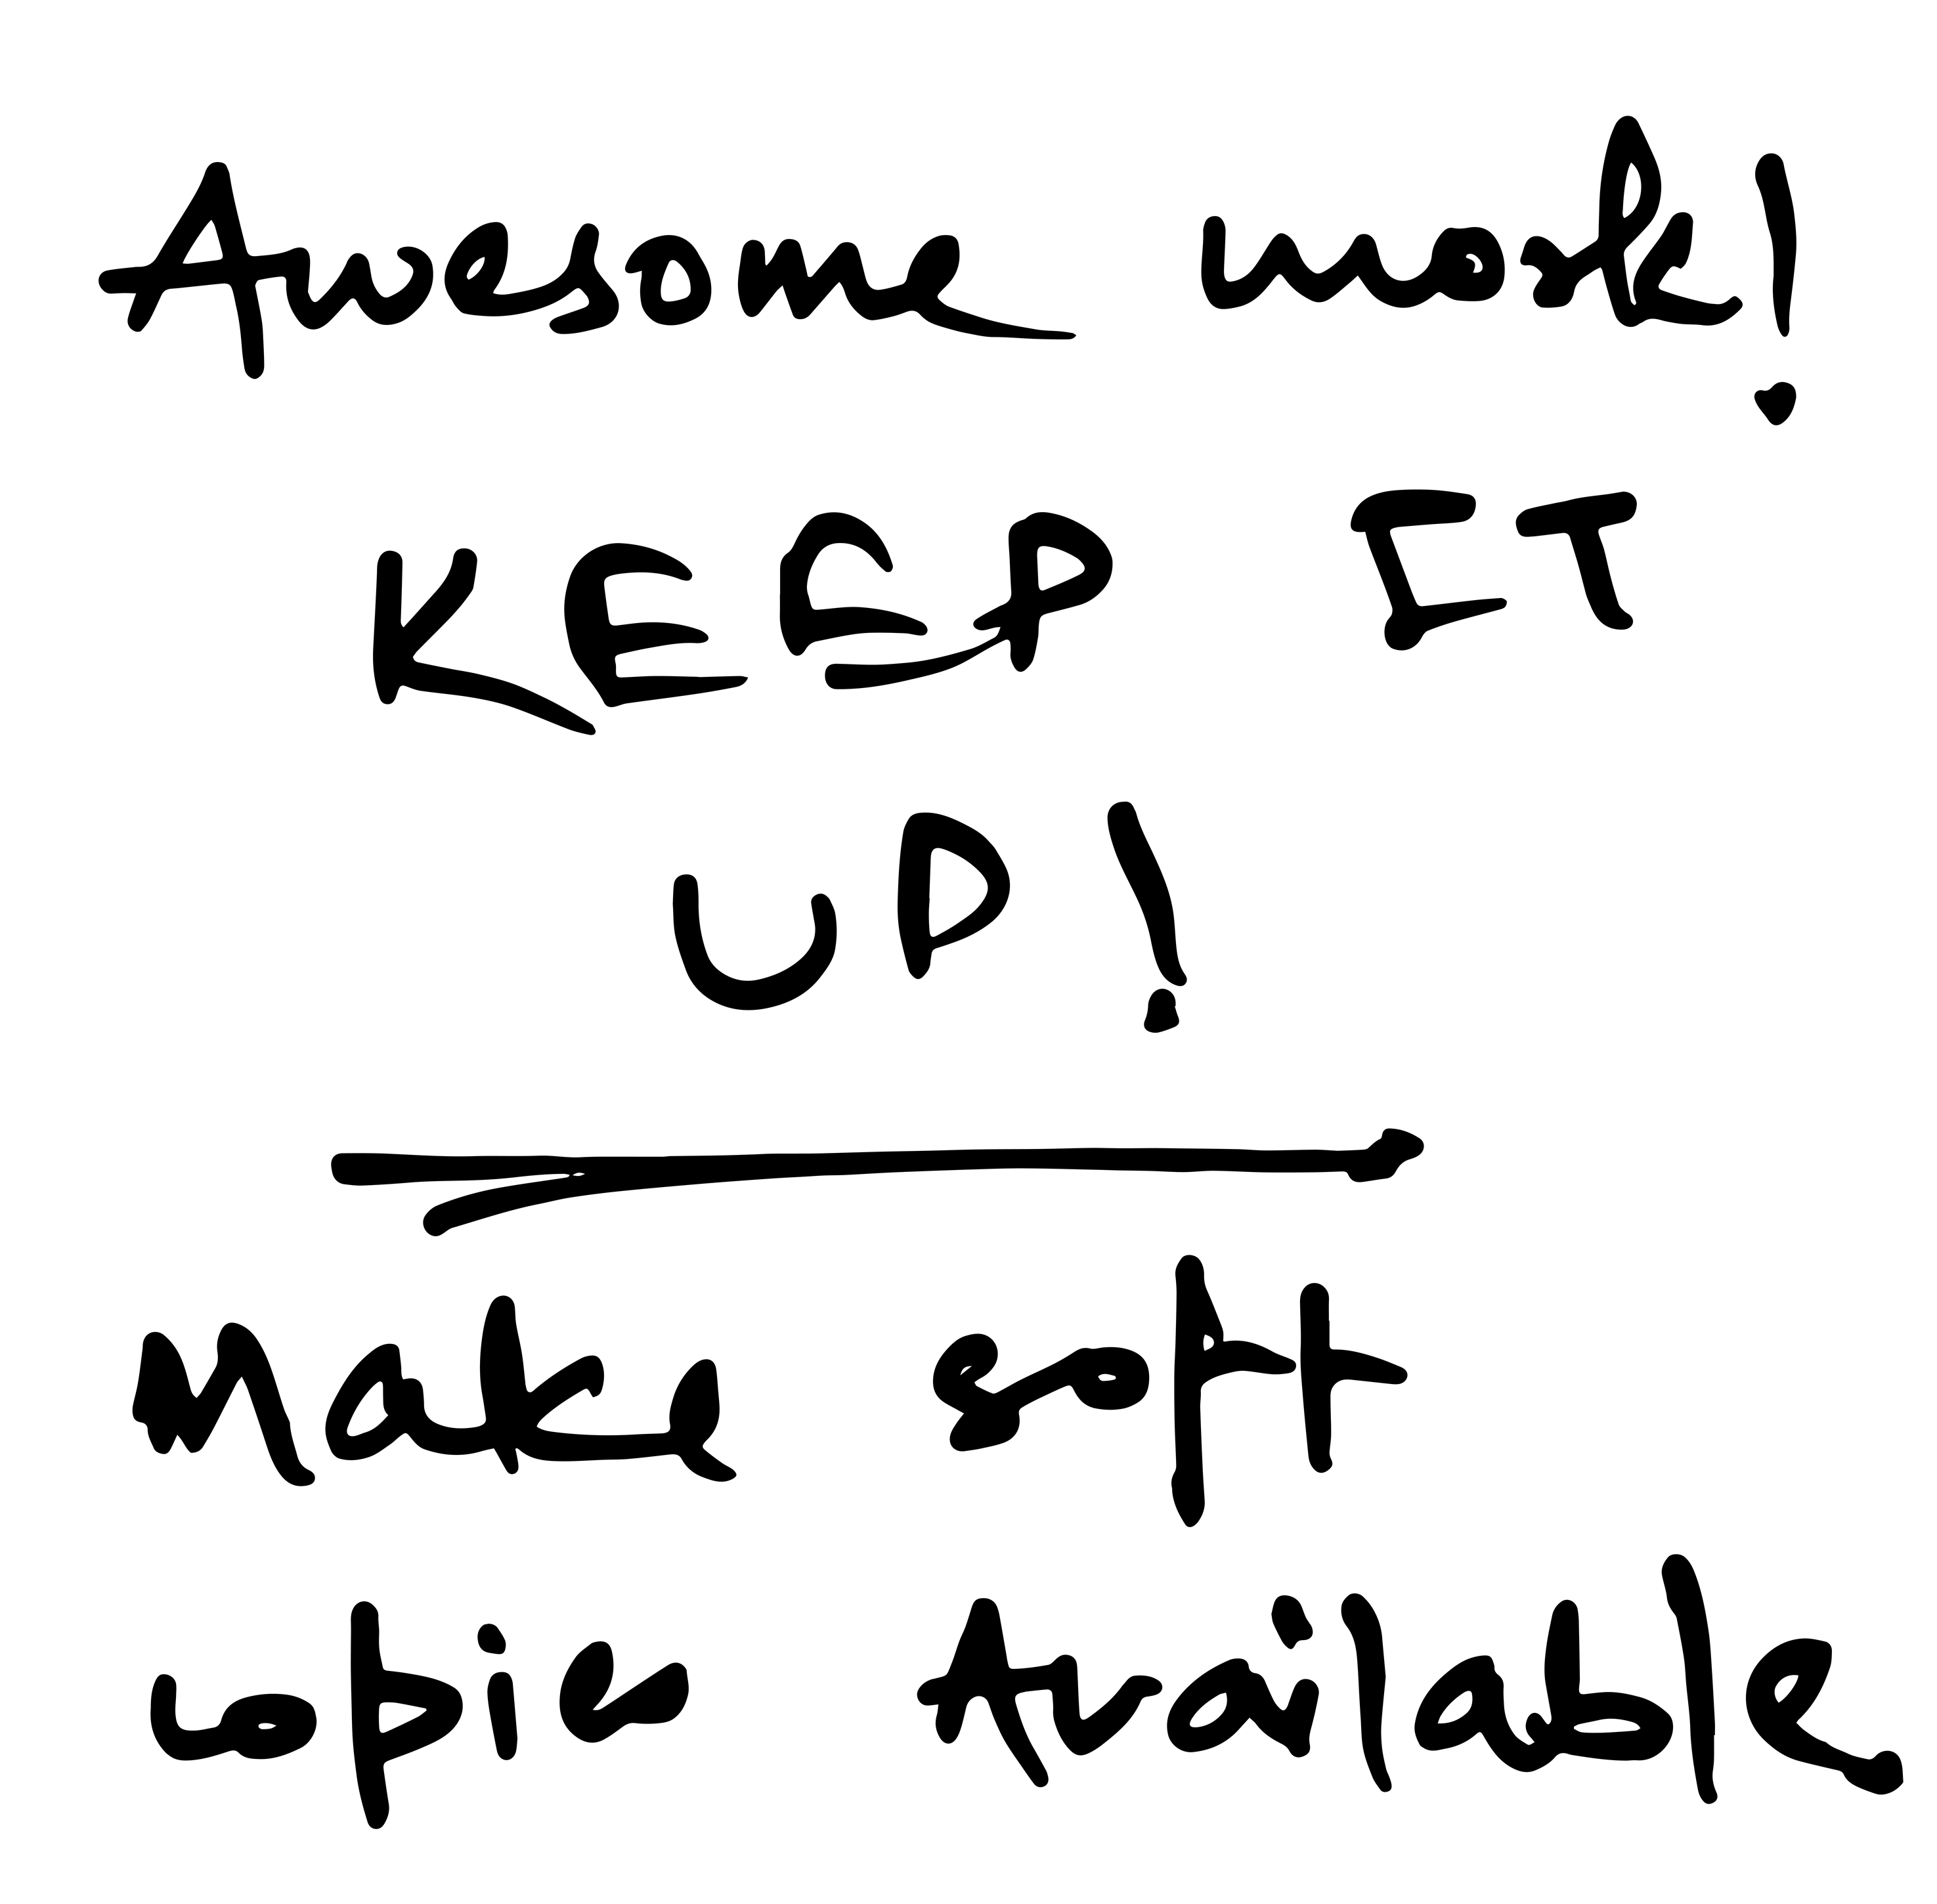 Awesome work!
KEEP IT
UP!
Make soft
copies Available